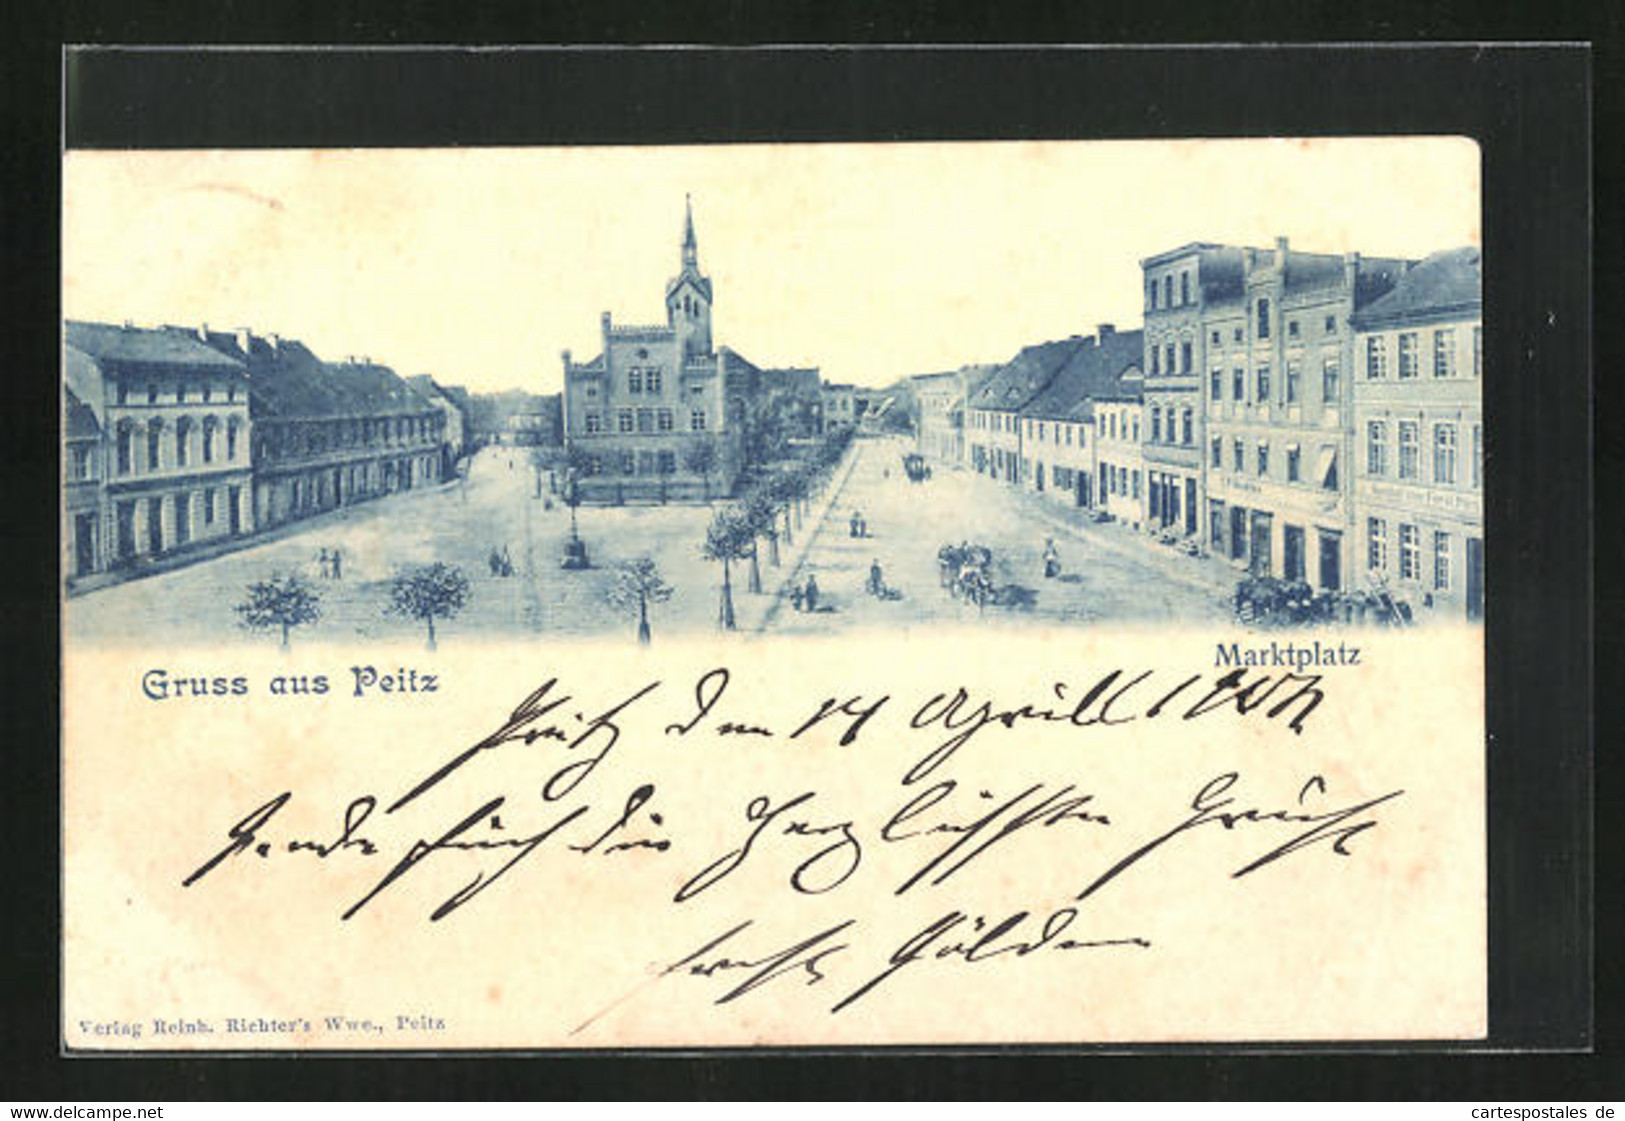 Gruss aus Peitz
Marktplatz
Peitz den 14 Aprill
Sende Euch die Herzlichsten Grüße
Ernst
Verlag Reinh. Richter's Wwe., Peitz
www.delcampe.net
cartespostales de